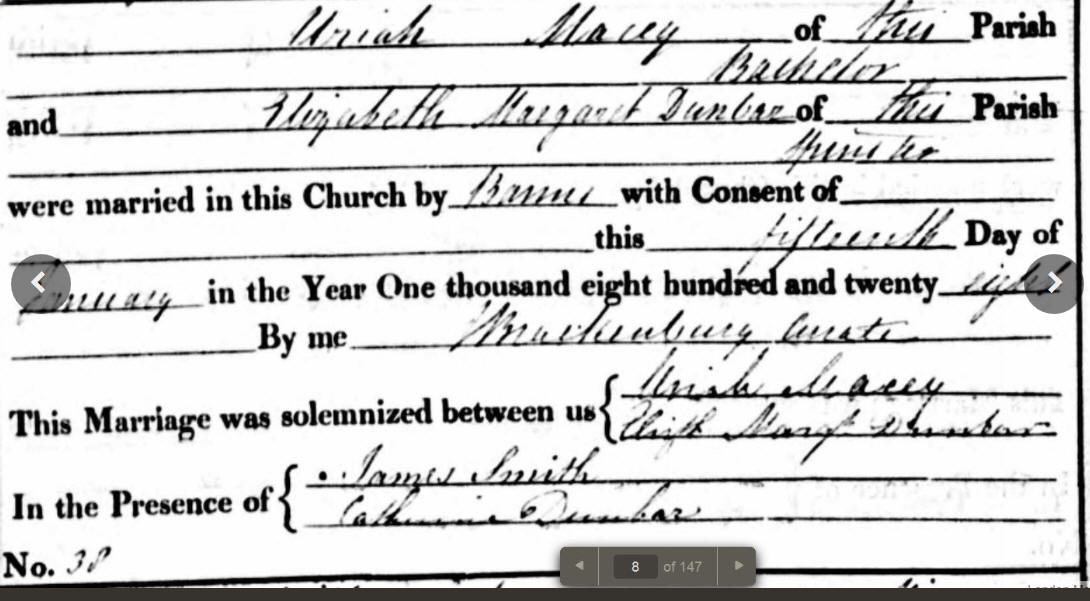 Uriah Macey of this Parish
Bachelor
and Elizabeth Margaret Dunbar of this Parish
Spinster
were married in this Church by Banns with Consent of
this fifteenth Day of
January in the Year One thousand eight hundred and twenty eight
By me Brackenbury Curate
This Marriage was solemnized between us { Uriah Macey
Elizth Margt Dunbar
In the Presence of { James Smith
Catherine Dunbar
No. 38
8 of 147